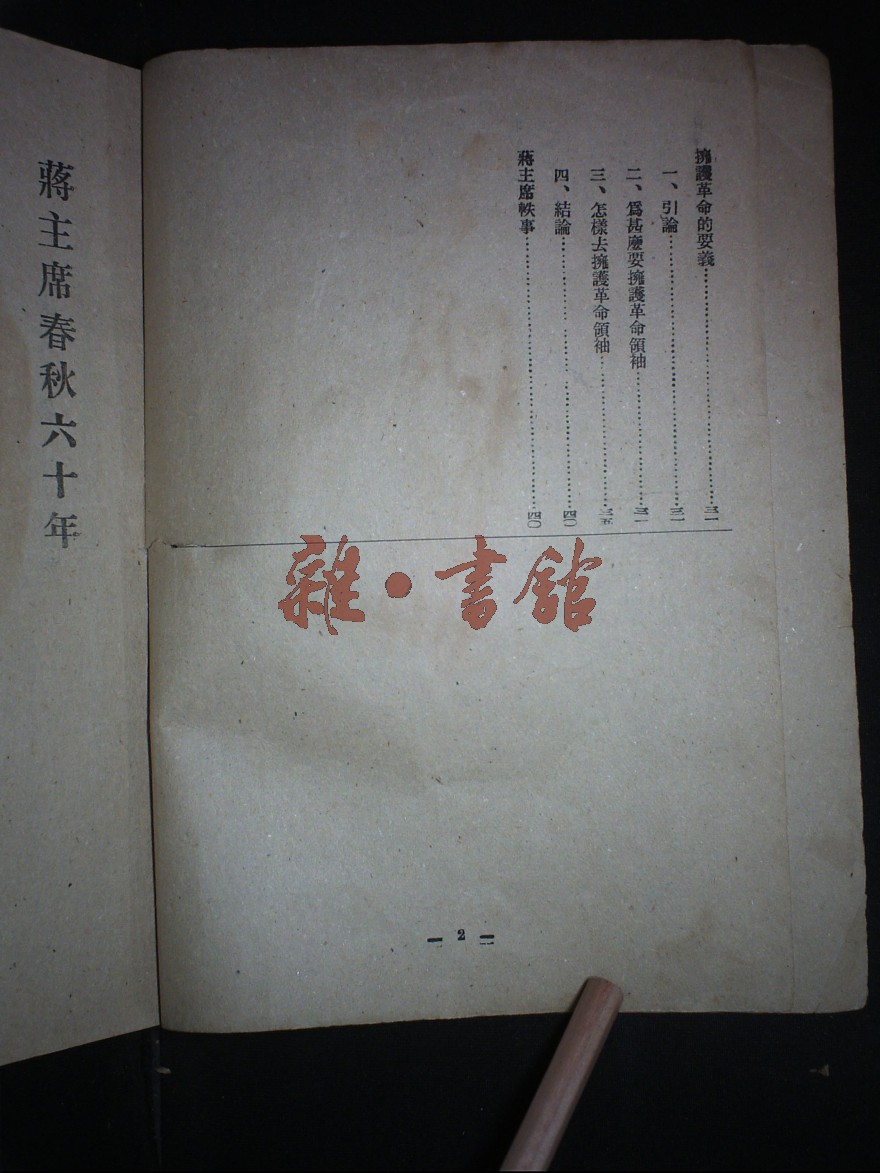 擁護革命的要義……三一
一、引論……三一
二、爲甚麽要擁護革命領袖……三一
三、怎樣去擁護革命領袖……三五
四、結論……四〇
蔣主席軼事……四〇
— 2 —
蔣主席春秋六十年
雜·書館